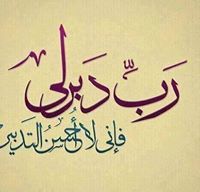 رَبِّ دَبِّر لی
فإنی لا أُحسن التدبير